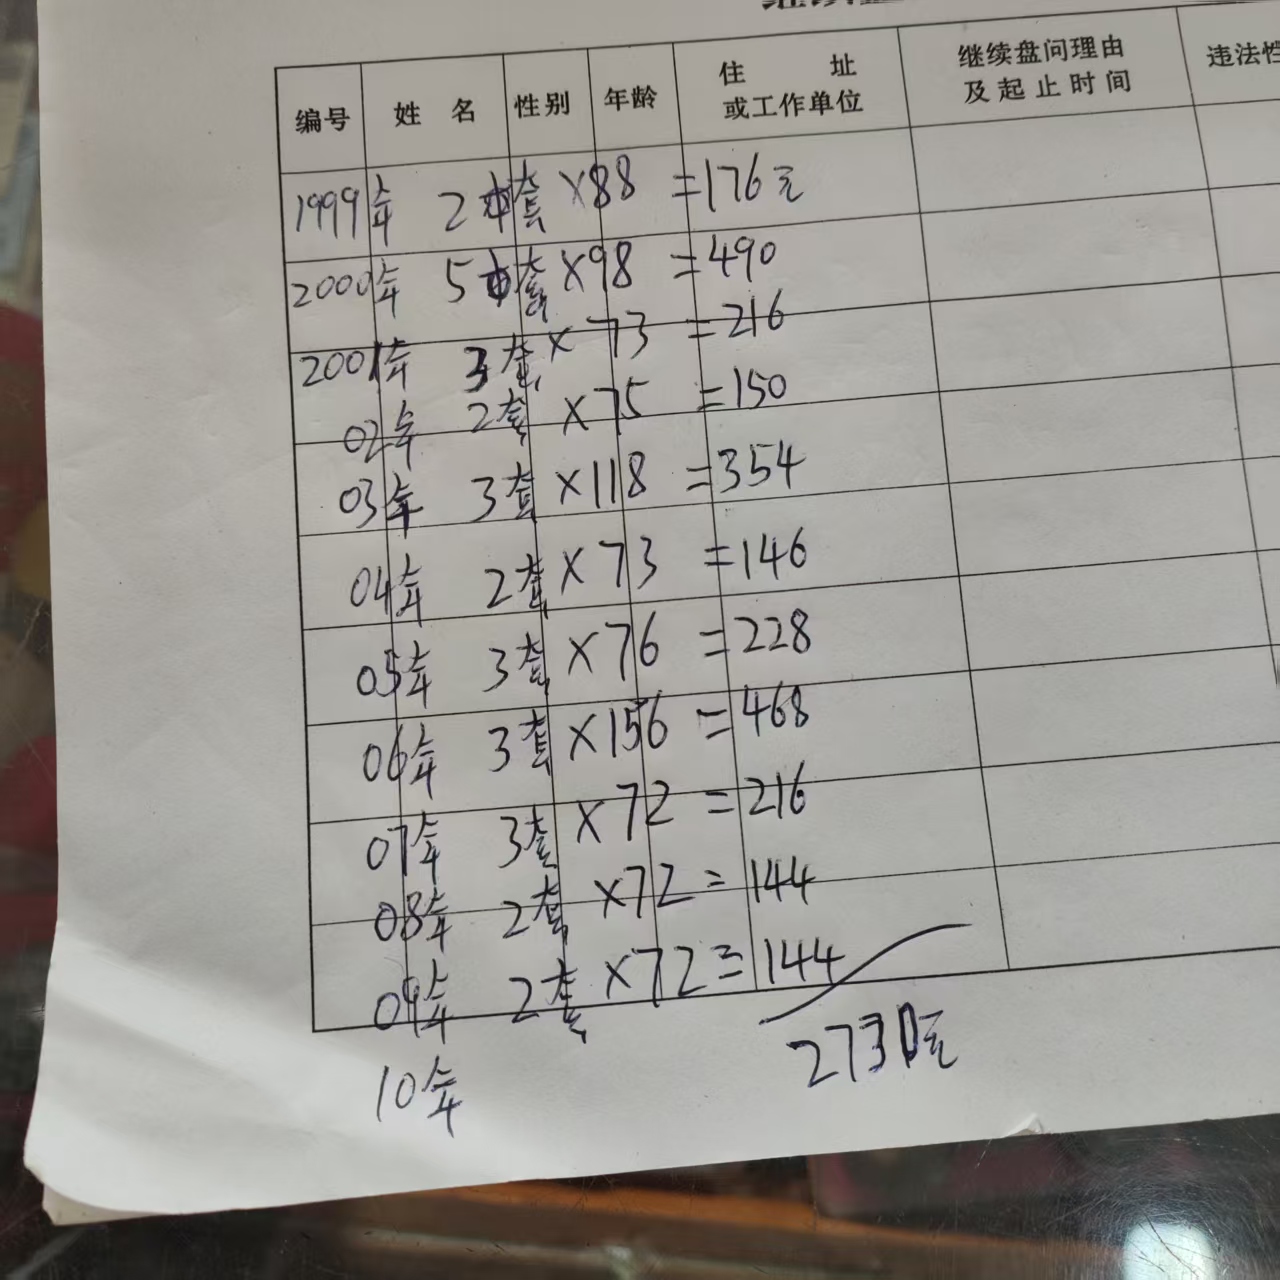 编号 姓名 性别 年龄 住址 继续盘问理由
或工作单位 及起止时间 违法性
1999年 2套 ×88 =176元
2000年 5套 ×98 =490
2001年 3套 ×73 =216
02年 2套 ×75 =150
03年 3套 ×118 =354
04年 2套 ×73 =146
05年 3套 ×76 =228
06年 3套 ×156 =468
07年 3套 ×72 =216
08年 2套 ×72 =144
09年 2套 ×72 =144
10年
2730元